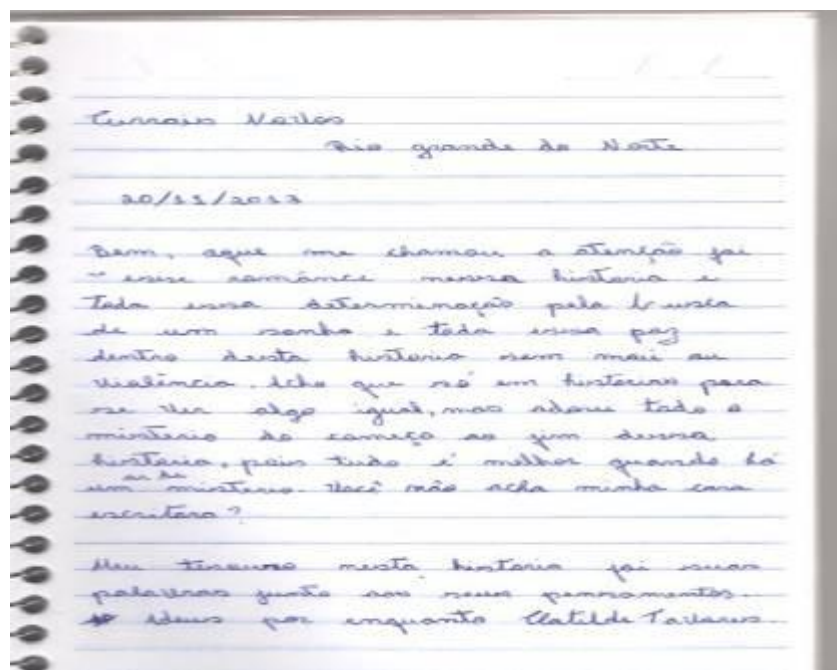 Currais Novos
Rio grande do Norte
20/11/2013
Bem, aque me chamou a atenção foi
esse romance nessa historia e
Toda essa determinação pela busca
de um sonho e toda essa paz
dentro desta historia sem mais ou
violência. Acho que só em historias para
se ver algo igual, mas adorei todo o
misterio do começo ao fim dessa
historia, pois tudo é melhor quando há
um ar de misterio. Você não acha minha cara
escritora?
Meu tesouro nesta historia foi suas
palavras junto aos seus pensamentos.
Adeus por enquanto Clotilde Tavares.